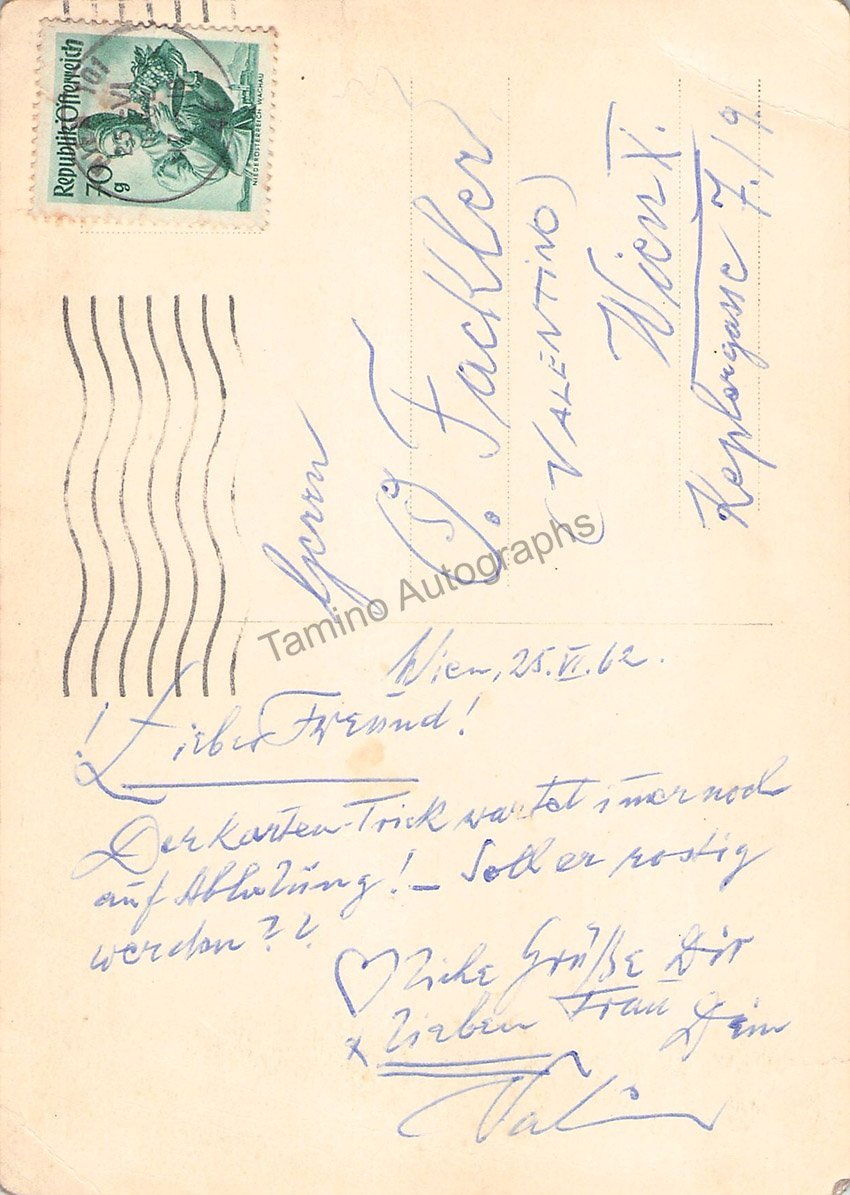 Republik Österreich
70
g
NIEDERÖSTERREICH WACHAU
101
25.VI
Herrn
J. Fackler
(VALENTINO)
Wien X.
Keplergasse 7./9.
Tamino Autographs
Wien, 25.VI.62.
! Lieber Freund!
Der Karten-Trick wartet im̅er noch
auf Abholung! – Soll er rostig
werden??
♡liche Grüße Dir
x lieben Frau Dein